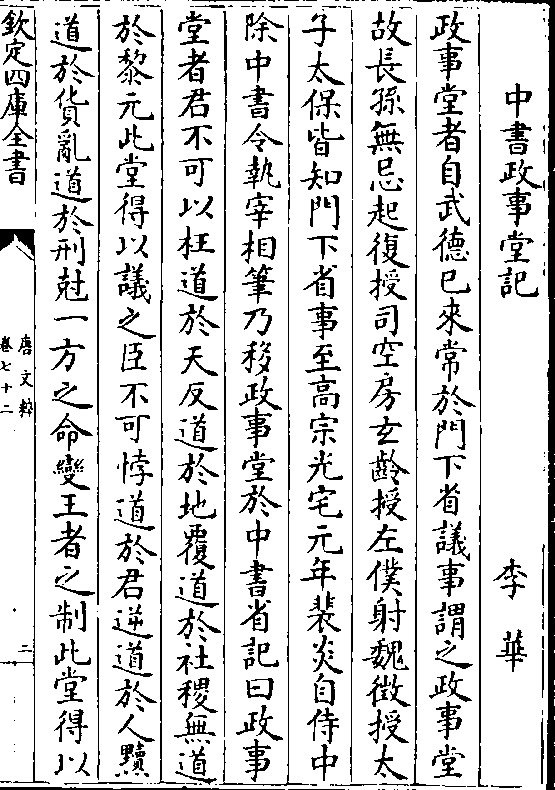 中書政事堂記　李華
政事堂者自武德已來常於門下省議事謂之政事堂
故長孫無忌起復授司空房玄齡授左僕射魏徵授太
子太保皆知門下省事至高宗光宅元年裴炎自侍中
除中書令執宰相筆乃移政事堂於中書省記曰政事
堂者君不可以枉道於天反道於地覆道於社稷無道
於黎元此堂得以議之臣不可悖道於君逆道於人黷
道於貨亂道於刑尅一方之命變王者之制此堂得以
欽定四庫全書
唐文粹
卷七十二
二